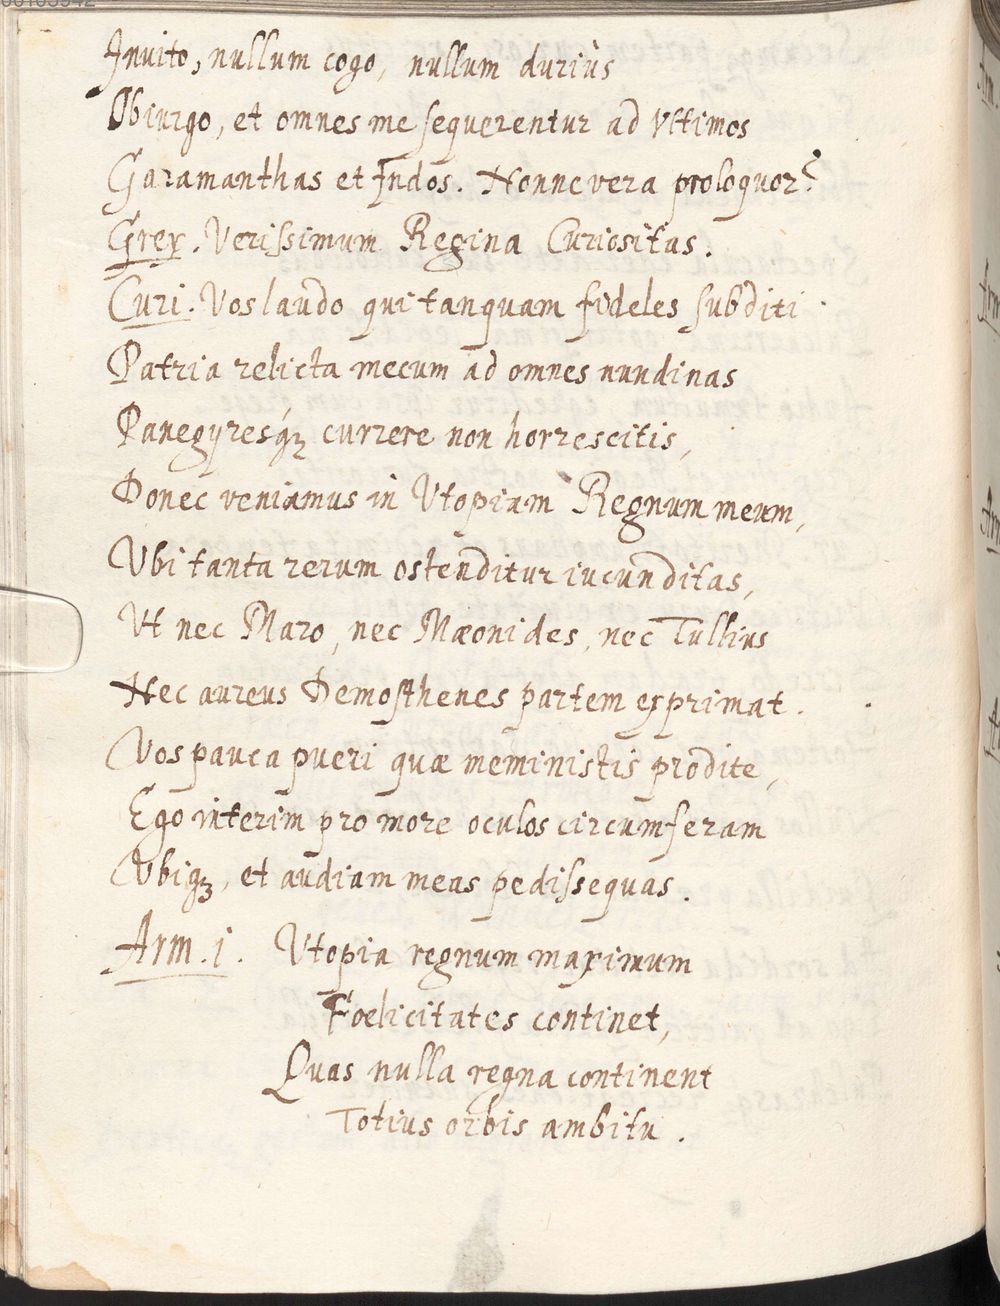 Inuito, nullum cogo, nullum duriùs
Obiurgo, et omnes me sequerentur ad Vltimos
Garamanthas et Indos. Nonne vera proloquor?
Grex. Verissimum Regina Curiositas.
Curi. Vos laudo qui tanquam fideles subditi
Patria relicta mecum ad omnes nundinas
Panegyresq́ꝫ currere non horrescitis,
Donec veniamus in Vtopiam Regnum meum,
Vbi tanta rerum ostenditur iucunditas,
Vt nec Maro, nec Mæonides, nec Tullius
Nec aureus Demosthenes partem exprimat.
Vos pauca pueri quæ meministis prodite,
Ego interim pro more oculos circumferam
Vbiqꝫ, et audiam meas pedissequas.
Arm. i. Vtopia regnum maximum
Foelicitates continet,
Quas nulla regna continent
Totius orbis ambitu.